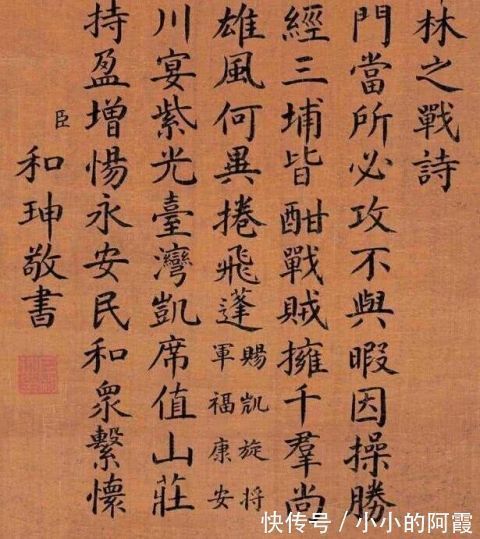 林之戰詩
門當所必攻不與暇因操勝
經三埔皆酣戰賊擁千羣尚
雄風何異捲飛蓬
賜凱旋将
軍福康安
川宴紫光臺灣凱席值山莊
持盈增惕永安民和衆繫懷
臣和珅敬書
快传号 / 小小的阿霞